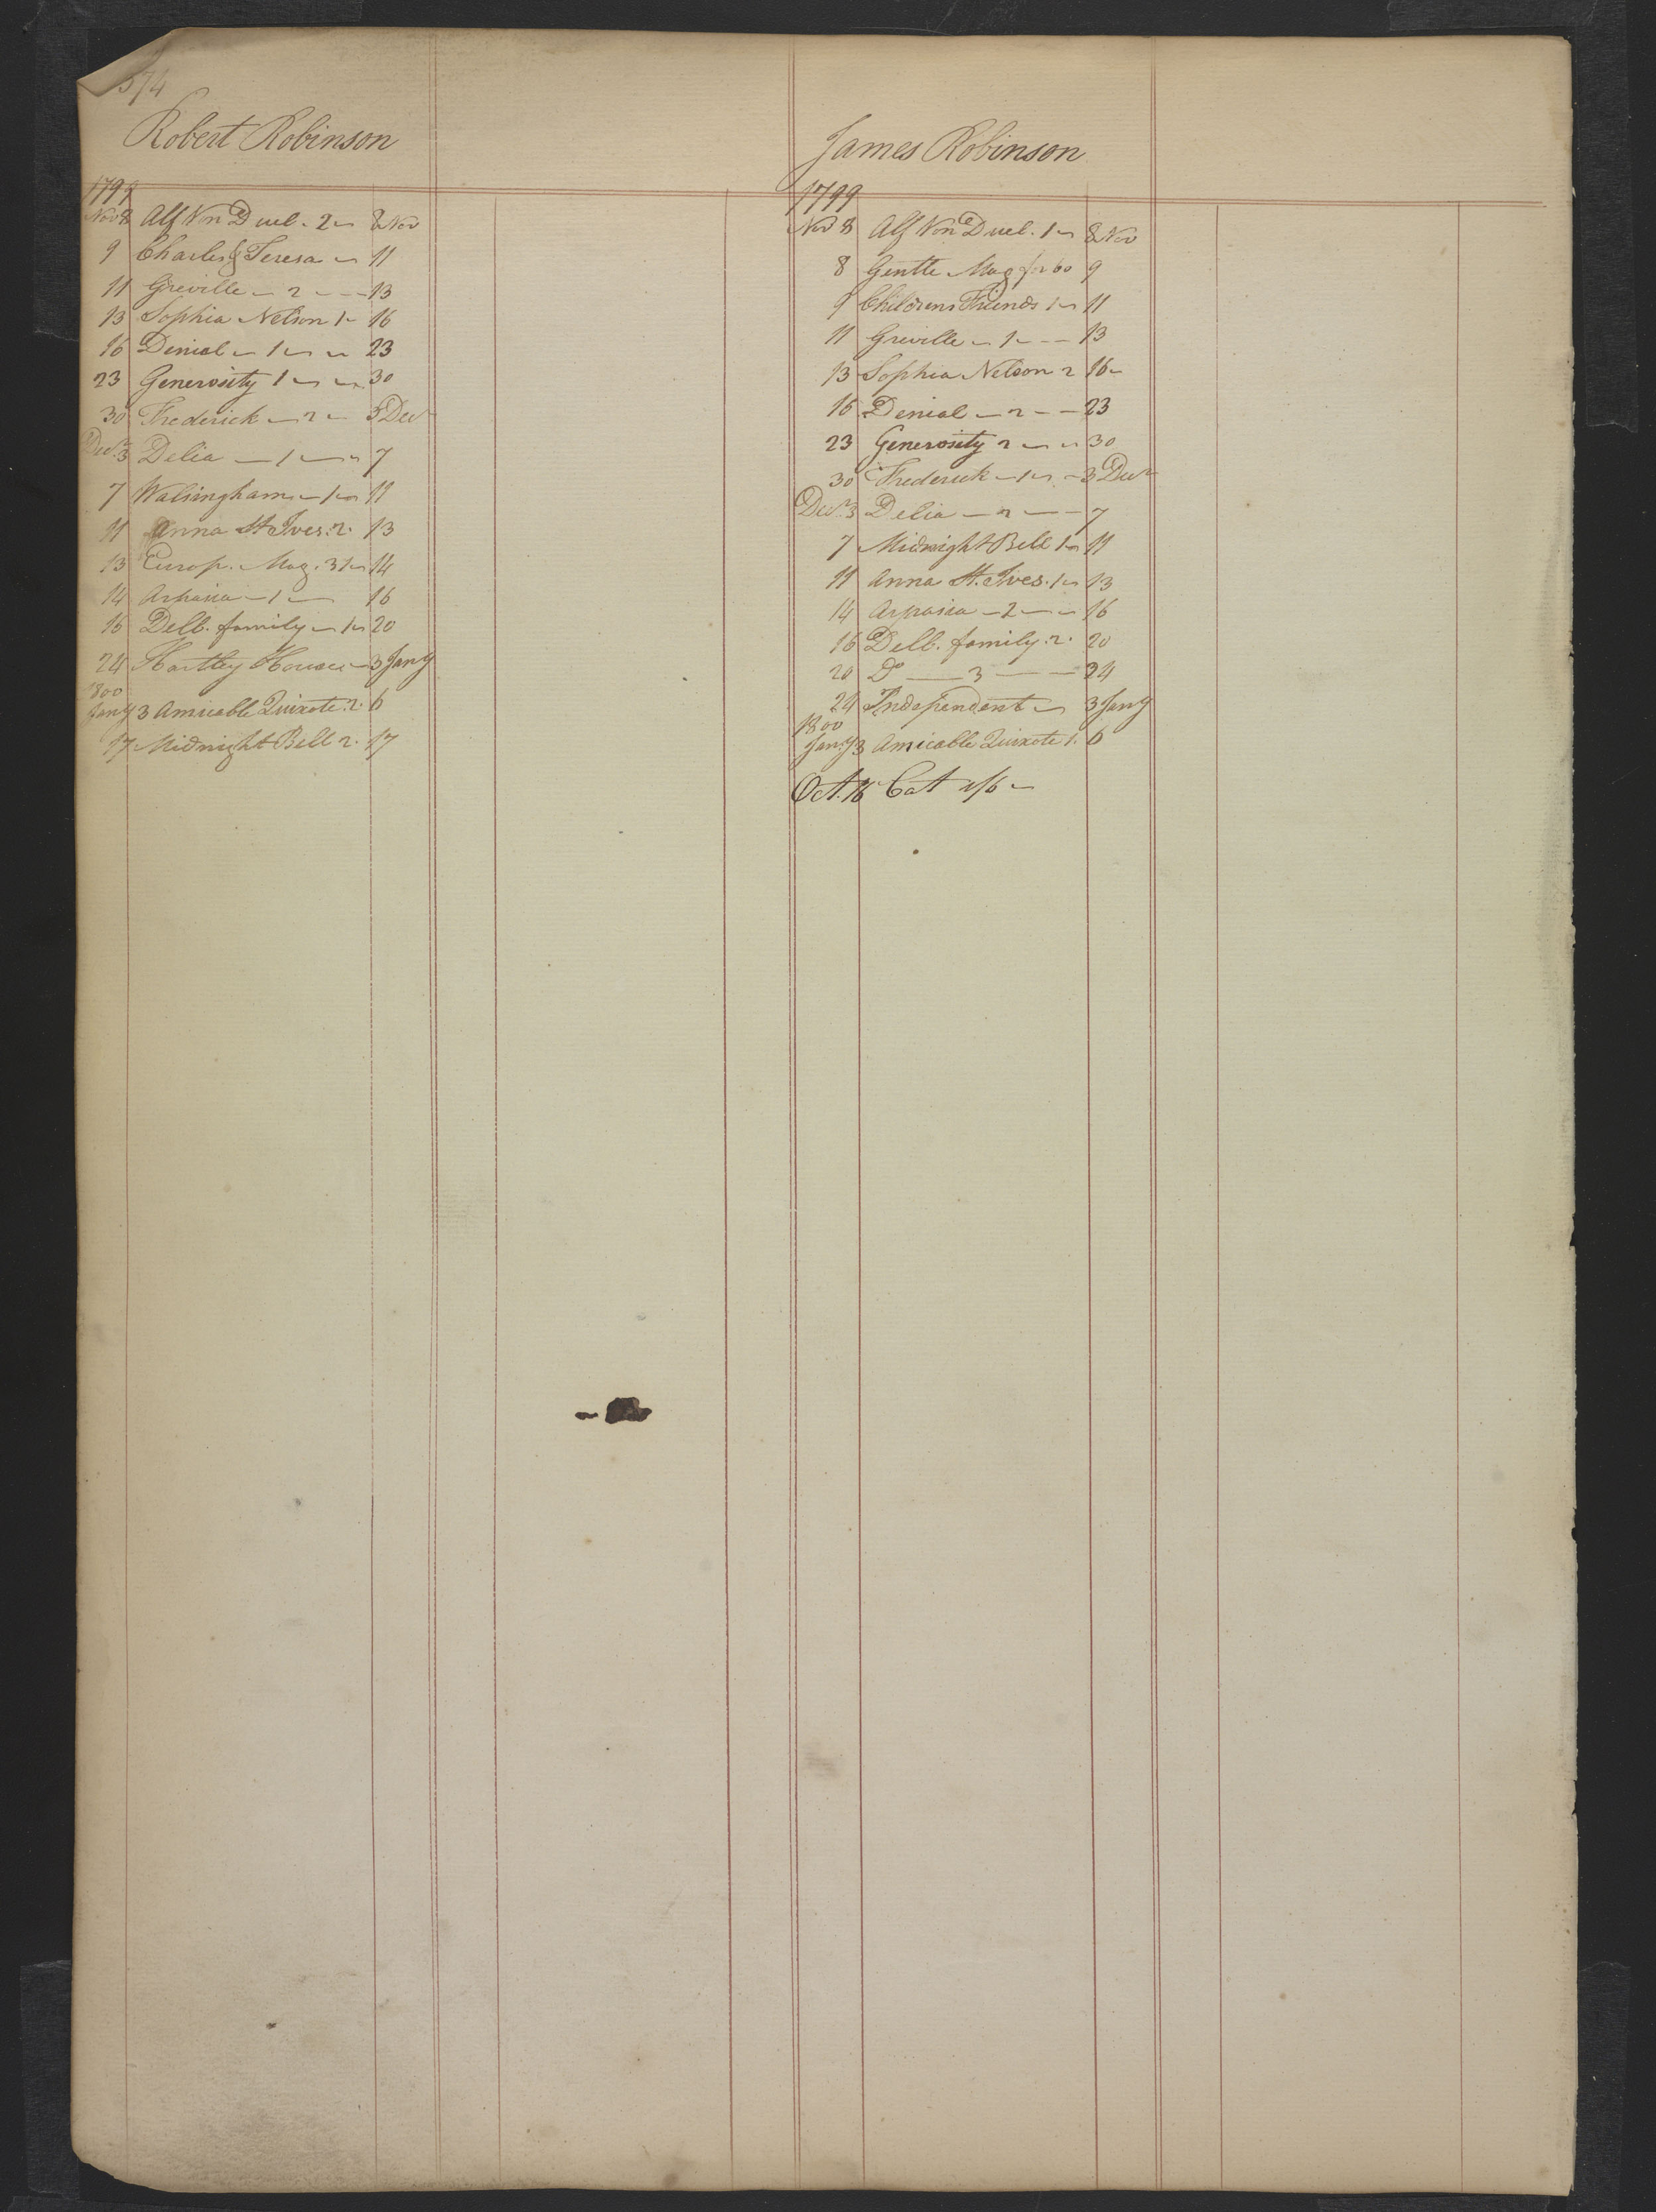 574
Robert Robinson
1799
Nov 8 Alf Von Duel. 2 8 Nov
9 Charles & Teresa 11
11 Greville 2 13
13 Sophia Nelson 1 16
16 Denial 1 23
23 Generosity 1 30
30 Frederick 2 3 Decr
Decr 3 Delia 1 7
7 Walsingham 1 11
11 Anna St Ives. 2. 13
13 Europ. Mag. 31 14
14 Aspasia 1 16
16 Delb. family 1 20
24 Hartley House 3 Jany
1800
Jany 3 Amicable Quixote. 2. 6
17 Midnight Bell 2. 17
James Robinson
1799
Nov 8 Alf Von Duel. 1 8 Nov
8 Gentle Mag for 60 9
9 Childrens Friends 1 11
11 Greville 1 13
13 Sophia Nelson 2 16
16 Denial 2 23
23 Generosity 2 30
30 Frederick 1 3 Decr
Decr 3 Delia 2 7
7 Midnight Bell 1 11
11 Anna St. Ives. 1 13
14 Aspasia 2 16
16 Delb. family. 2. 20
20 Do 3 24
24 Independent 3 Jany
1800
Jany 3 Amicable Quixote 1. 6
Oct. 16 Cat 1/6